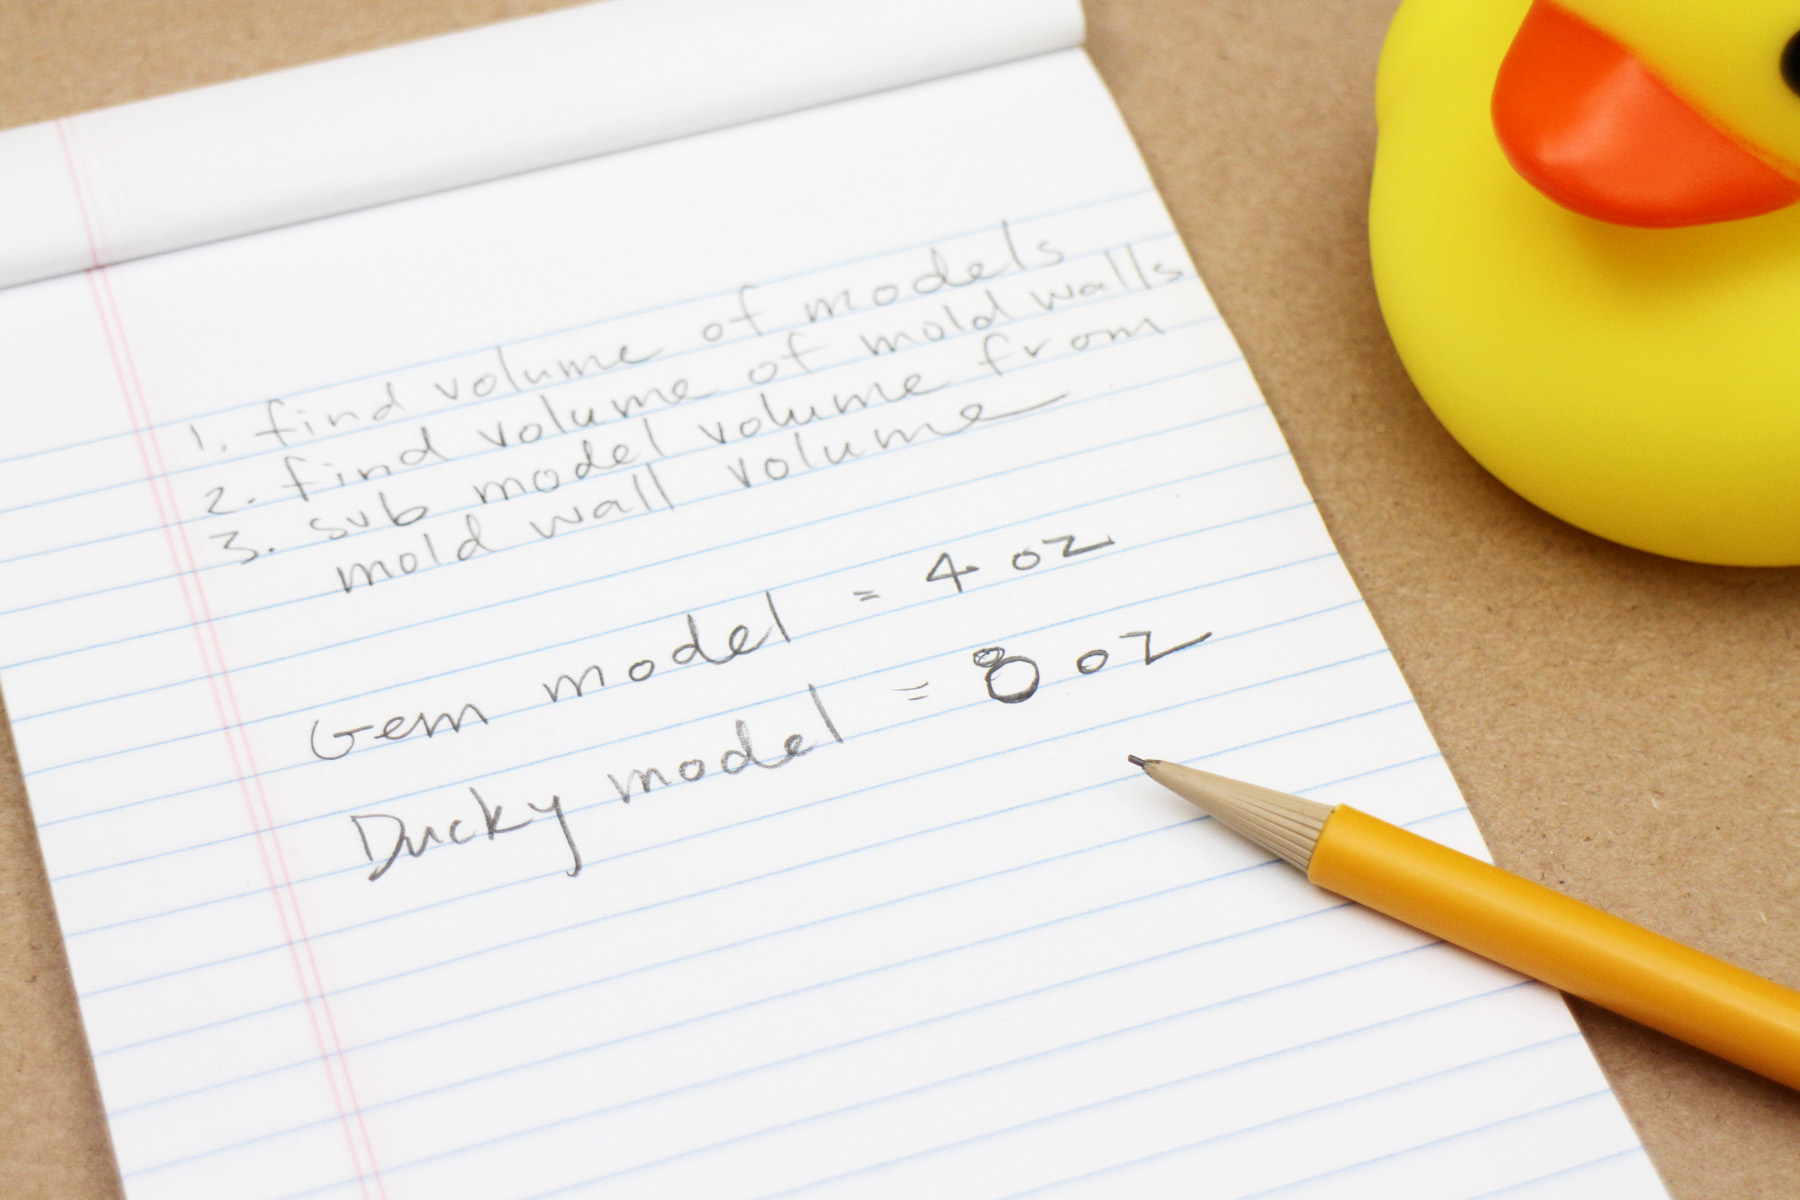 1. find volume of models
2. find volume of mold walls
3. sub model volume from
mold wall volume
Gem model = 4 oz
Ducky model = 8 oz